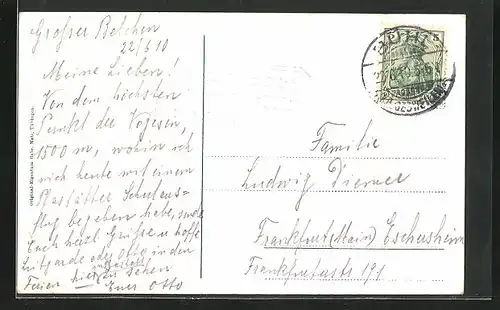 Großer Belchen
22/6 10
Meine Lieben!
Von dem höchsten
Punkt der Vogesen,
1500 m, wohin ich
mich heute mit einem
Schulaus-
flug begeben habe, sende
Euch herzl. Grüße u. hoffe
Luitgarde oder Otto in den
Ferien hier zu sehen
Euer Otto
Familie
Ludwig Diemer
Frankfurt (Main) Eschersheim
Frankfurterstr 191